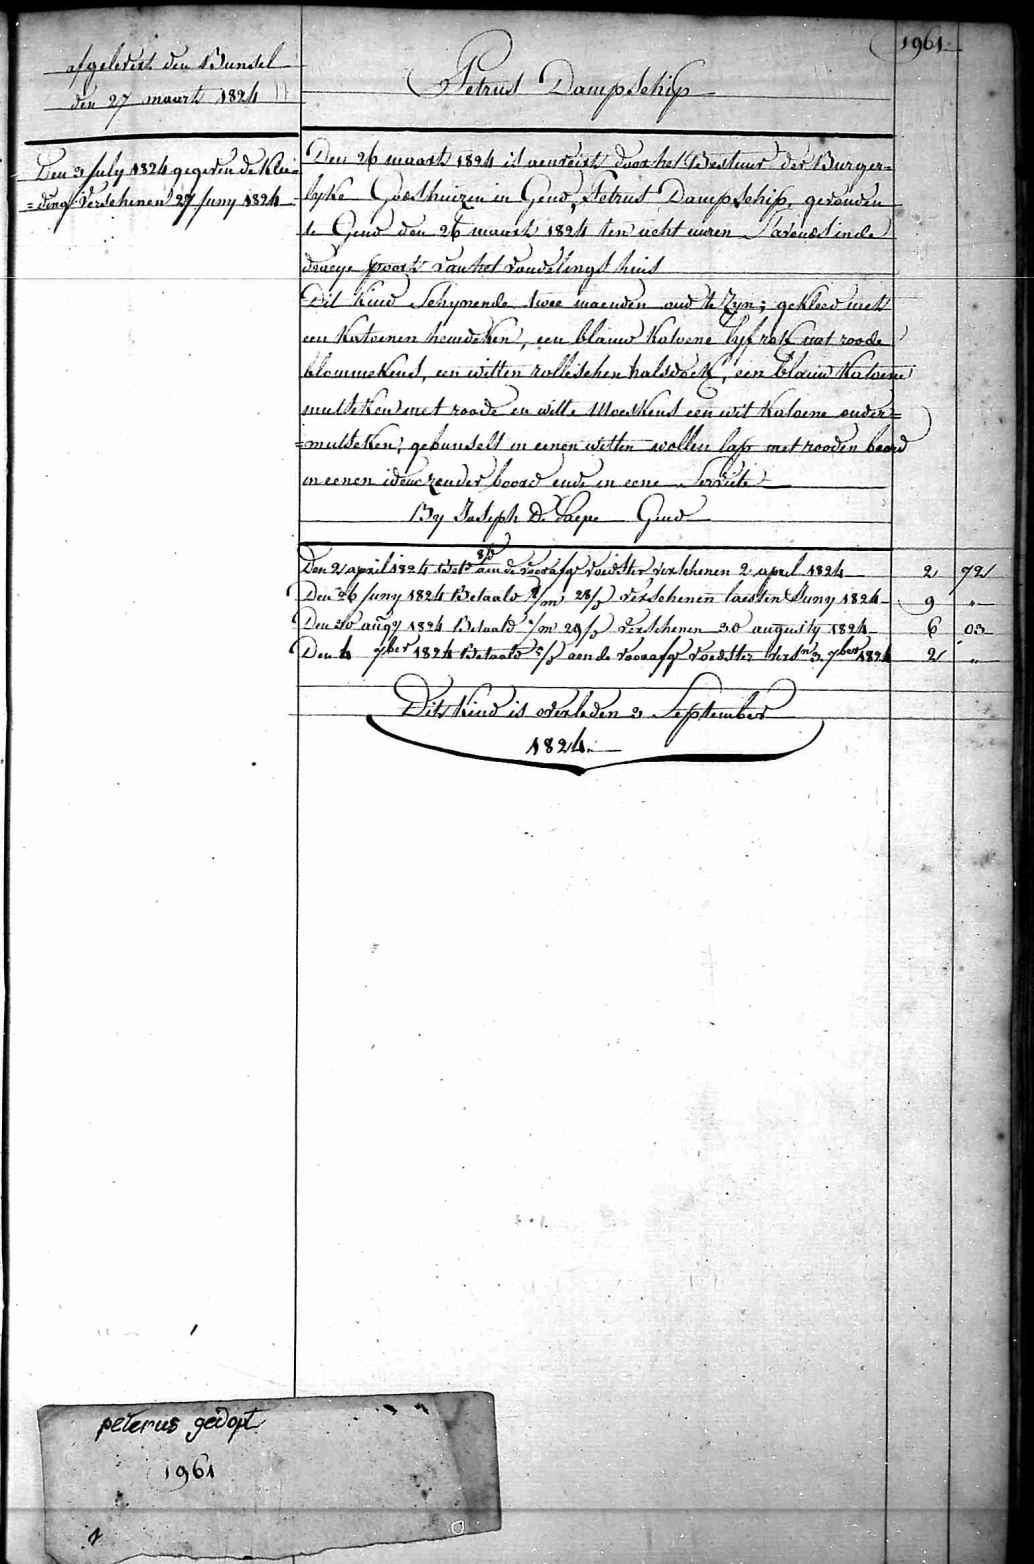 1961.
afgelevert den Bunsel
den 27 maart 1824
Petrus Dampschip
Den 3 July 1824 gegeven de Klee=
=ding verschenen 27 Juny 1824
Den 26 maart 1824 is aenveirt door het Bestuur der Burger=
lyke Godshuizen in Gend, Petrus Dampschip, gevonden
te Gend den 26 maart 1824 ten acht uuren S'avonds in de
draeye poorte van het vondelings huis
Dit Kind Schynende twee maenden oud te Zyn; gekleed met
een Katoenen hemdeken, een blauw Katoene lyfrok met roode
blommekens, een witten rollischen halsdoek, een blauw Katoene
mutseken met roode en witte Moeskens een wit Katoene onder=
=mutseken; gebunselt in eenen witten wollen lap met rooden boord
in eenen idem zonder boord ende in eene Serviete
By Joseph De Paepe Gend
Den 2 april 1824 8/d aen de voorafg voedster verschenen 2 april 1824 2 92
Den 26 Juny 1824 Betaald 28/d verschenen laesten Juny 1824 9 "
Den 30 aug 1824 Betaald 29/d verschenen 30 augusty 1824 6 03
Den 4 7ber 1824 Betaald aen de voorafg voedster vers 3 7ber 1824 2 "
Dit Kind is overleden 3 September
1824.
peterus gedopt
1961